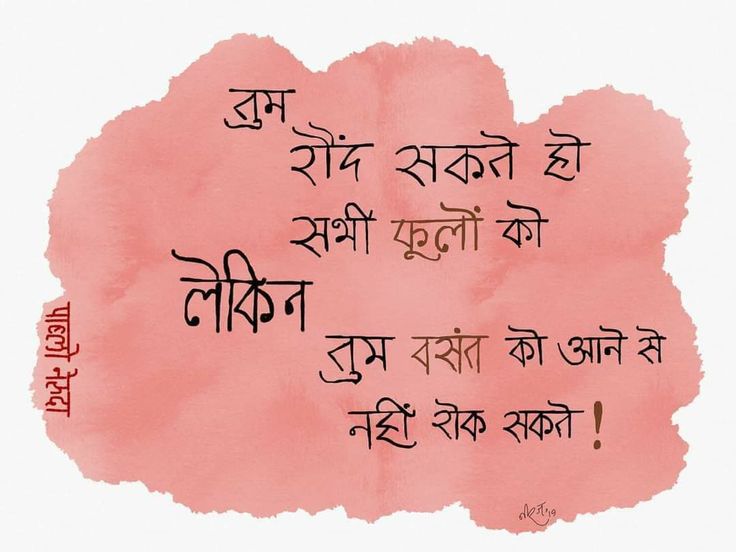 तुम
रौंद सकते हो
सभी फूलों को
लेकिन
तुम वसंत को आने से
नहीं रोक सकते !
पाब्लो नेरूदा